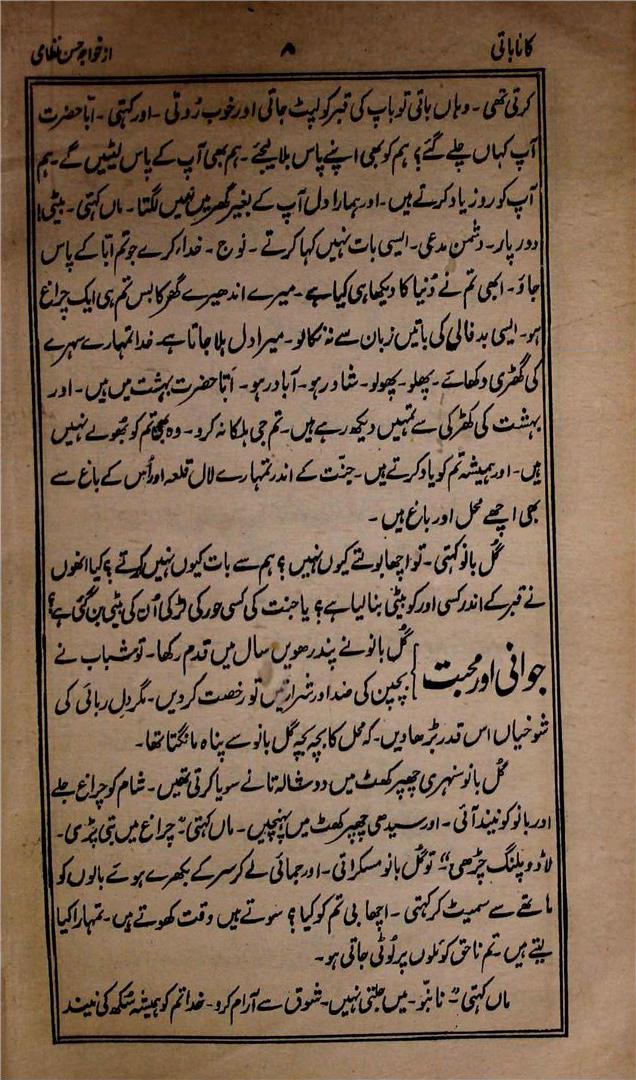 کانا باتی ۸ از خواجہ حسن نظامی
کرتی تھی۔ وہاں جاتی تو باپ کی قبر کو لپٹ جاتی اور خوب رُوتی۔ اور کہتی۔ ابّا حضرت
آپ کہاں چلے گئے؟ ہم کو بھی اپنے پاس بلا لیجئے۔ ہم بھی آپ کے پاس لیٹیں گے۔ ہم
آپ کو روز یاد کرتے ہیں۔ اور ہمارا دل آپ کے بغیر گھر میں نہیں لگتا۔ ماں کہتی۔ بیٹی!
دور پار۔ دشمن مدعی۔ ایسی بات نہیں کہا کرتے۔ نوج۔ خدا، کرے جو تم ابّا کے پاس
جاؤ۔ ابھی تم نے دُنیا کا دیکھا ہی کیا ہے۔ میرے اندھیرے گھر کا بس تم ہی ایک چراغ
ہو۔ ایسی بدفالی کی باتیں زبان سے نہ نکالو۔ میرا دل ہلا جاتا ہے۔ خدا تمہارے سہرے
کی گھڑی دکھائے۔ پھلو۔ پھولو۔ شاد رہو۔ آباد رہو۔ ابّا حضرت بہشت میں ہیں۔ اور
بہشت کی کھڑکی سے تمہیں دیکھ رہے ہیں۔ تم جی ہلکا نہ کرو۔ وہ بھی تم کو بھُولے نہیں
ہیں۔ اور ہمیشہ تم کو یاد کرتے ہیں۔ جنّت کے اندر تمہارے لال قلعہ اور اُس کے باغ سے
بھی اچھے محل اور باغ ہیں۔
گُل بانو کہتی۔ تو اچھا بولتے کیوں نہیں؟ ہم سے بات کیوں نہیں کرتے؟ کیا انھوں
نے قبر کے اندر کسی اور کو بیٹی بنا لیا ہے؟ یا جنت کی کسی حور کی لڑکی اُن کی بیٹی بن گئی ہے؟
جوانی اور محبت
گُل بانو نے پندرھویں سال میں قدم رکھا۔ تو شباب نے
بچپن کی ضد اور شرارتیں تو رخصت کر دیں۔ مگر دل ربائی کی
شوخیاں اس قدر بڑھا دیں۔ کہ محل کا بچہ بچہ گل بانو سے پناہ مانگتا تھا۔
گُل بانو سنہری چھپر کھٹ میں دو شالہ تانے سویا کرتی تھیں۔ شام کو چراغ جلے
اور بانو کو نیند آئی۔ اور سیدھی چھپر کھٹ میں پہنچیں۔ ماں کہتی۔ ”چراغ میں بتی پڑی۔
لاڈو پلنگ چڑھی“۔ تو گُل بانو مسکراتی۔ اور جمائی لے کر سر کے بکھرے ہوئے بالوں کو
ماتھے سے سمیٹ کر کہتی۔ اچھا بی تم کو کیا؟ سوتے ہیں وقت کھوتے ہیں۔ تمہارا کیا
لیتے ہیں۔ تم ناحق کوئلوں پر لُوٹی جاتی ہو۔
ماں کہتی۔ ”نا بنّو۔ میں جلتی نہیں۔ شوق سے آرام کرو۔ خدا تم کو ہمیشہ سُکھ کی نیند